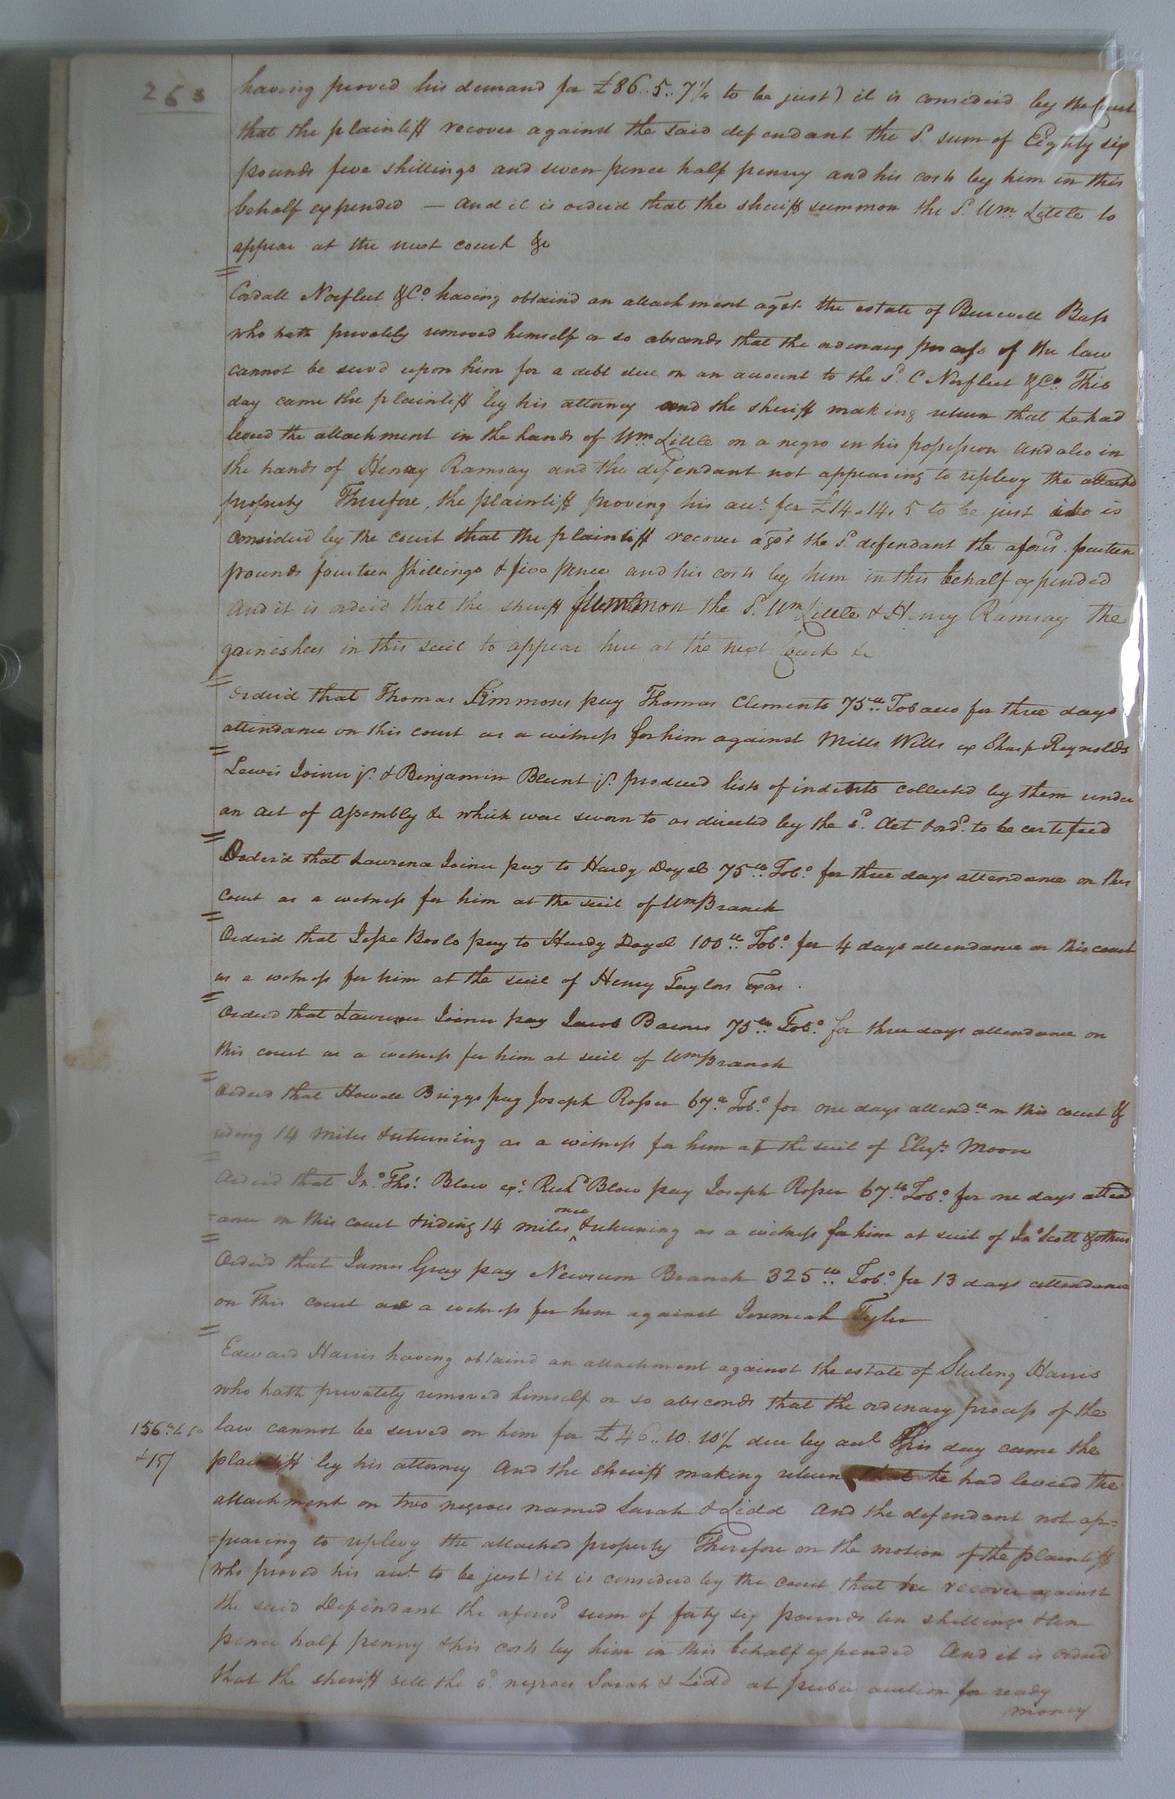 263
having proved his demand for £86..5..7½ to be just) it is considerd by the Court
that the plaintiff recover against the said defendant the sd sum of Eighty six
pounds five shillings and seven pence half penny and his costs by him in this
behalf expended — and it is orderd that the sheriff summon the sd Wm Little to
appear at the next court &c
Cordall Norfleet & Co. having obtaind an attachment agst the estate of Burwell Bass
who hath privately removed himself or so absconds that the ordenary process of the law
cannot be servd upon him for a debt due on an account to the sd C Norfleet & Co. This
day came the plaintiff by his attorney and the sheriff making return that he had
levied the attachment in the hands of Wm Little on a negro in his possession and also in
the hands of Henry Ramsay and the defendant not appearing to replevy the attachd
property Therefore, the plaintiff proving his acct for £14.14.5 to be just is
considerd by the court that the plaintiff recover agst the sd defendant the aforsd fourteen
pounds fourteen shillings & five pence and his costs by him in this behalf expended
And it is orderd that the sheriff summon the sd Wm Little & Henry Ramsay the
garnishees in this suit to appear here at the next Court &c
Orderd that Thomas Simmons pay Thomas Clements 75 lb Tobacco for three days
attendance on this court as a witness for him against Mills Wills ex Sharp Reynolds
Lewis Joiner jr. & Benjamin Blunt jr. produced lists of indents collected by them under
an act of assembly &c which were sworn to as directed by the sd Act & ordd to be certified
Orderd that Lawrence Joiner pay to Hardy Doyel 75 lb Tobo for three days attendance on this
court as a witness for him at the suit of Wm Branch
Orderd that Jesse pay to Hardy Doyel 100 lb Tobo for 4 days attendance on this court
as a witness for him at the suit of Henry Taylors Exor.
Orderd that Lawrence Joiner pay Jacob Barnes 75 lb Tobo for three days attendance on
this court as a witness for him at suit of Wm Branch
Orderd that Howell Briggs pay Joseph Rosser 67 lb Tobo for one days attendce on this court &
riding 14 miles & returning as a witness for him at the suit of Moore
Orderd that Jno Thos Blow exr Richd Blow pay Joseph Rosser 67 lb Tobo for one days attend
=ance on this court & riding 14 miles once & returning as a witness for him at suit of Jno Scott & others
Orderd that James Gray pay Newsum Branch 325 lb Tobo for 13 days attendance
on This court as a witness for him against Jeremiah Tyler
Edward Harris having obtaind an attachment against the estate of Sterling Harris
who hath privately removed himself or so absconds that the ordenary process of the
law cannot be served on him for £46..10.10½ due by acct This day came the
156
£157
plaintiff by his attorney and the sheriff making return that he had levied the
attachment on two negroes named Sarah & Lidd And the defendant not ap=
=pearing to replevy the attached property Therefore on the motion of the plaintiff
(who proved his acct to be just) it is considerd by the court that he recover against
the said Defendant the aforesd sum of forty six pounds ten shillings & ten
pence half penny & his costs by him in this behalf expended And it is orderd
that the sheriff sell the sd negroes Sarah & Lidd at public auction for ready
money